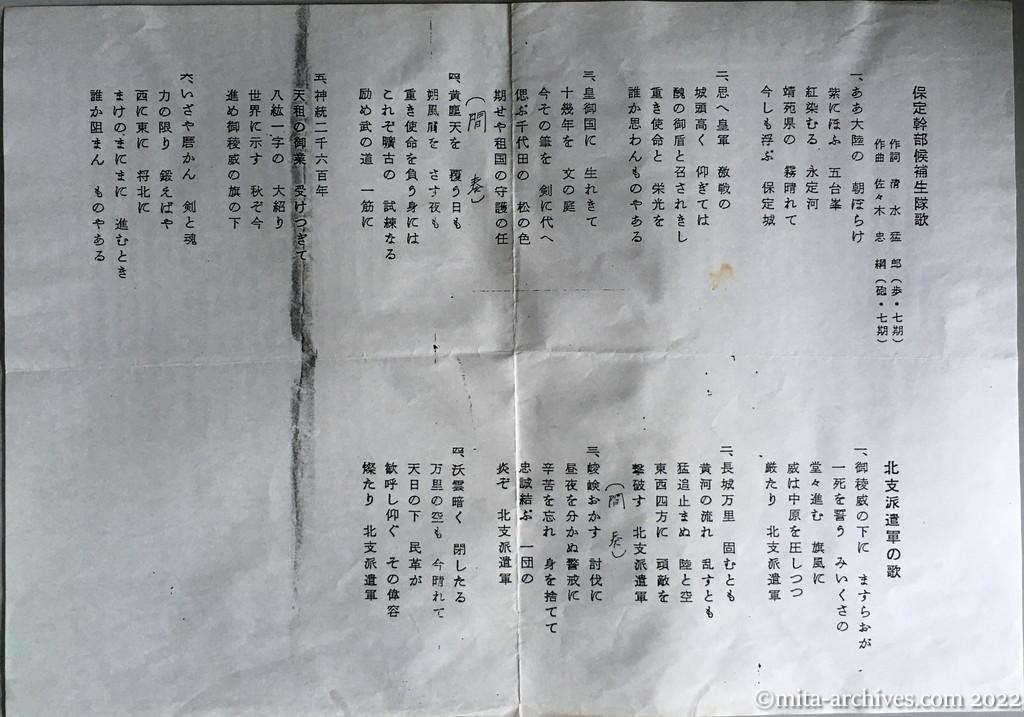 保定幹部候補生隊歌
作詞 清水猛郎(歩・七期)
作曲 佐々木忠綱(砲・七期)
一、ああ大陸の 朝ぼらけ
紫にほふ 五台峯
紅染むる 永定河
靖苑県の 霧晴れて
今しも浮ぶ 保定城
二、思へ皇軍 激戦の
城頭高く 仰ぎては
醜の御盾と召されきし
重き使命と 栄光を
誰か思わんものやある
三、皇御国に 生れきて
十幾年を 文の庭
今その筆を 剣に代へ
偲ぶ千代田の 松の色
期せや祖国の守護の任
(間 奏)
四、黄塵天を 覆う日も
朔風膚を さす夜も
重き使命を負う身には
これぞ曠古の 試練なる
励め武の道 一筋に
五、神統二千六百年
天祖の御業 受けつぎて
八紘一字の 大紹り
世界に示す 秋ぞ今
進め御稜威の旗の下
六、いざや磨かん 剣と魂
力の限り 鍛えばや
西に東に 将北に
まけのまにまに 進むとき
誰か阻まん ものやある
北支派遣軍の歌
一、御稜威の下に ますらおが
一死を誓う みいくさの
堂々進む 旗風に
威は中原を圧しつつ
厳たり 北支派遣軍
二、長城万里 固むとも
黄河の流れ 乱すとも
猛追止まぬ 陸と空
東西四方に 頑敵を
撃破す 北支派遣軍
(間 奏)
三、峻嶮おかす 討伐に
昼夜を分かぬ警戒に
辛苦を忘れ 身を捨てて
忠誠結ぶ 一団の
炎ぞ 北支派遣軍
四、沃雲暗く 閉したる
万里の空も 今晴れて
天日の下 民草が
歓呼し仰ぐ その偉容
燦たり 北支派遣軍
©mita-archives.com 2022